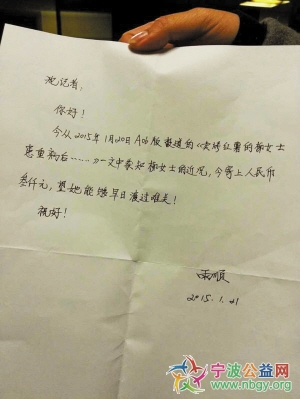 沈记者:
你好!
今从2015年1月20日A06版报道的《卖烤红薯的杨女士
患重病后……》一文中获知杨女士的近况,今寄上人民币
叁仟元,望她能够早日渡过难关!
祝好!
雨顺
2015.1.21
宁波公益网
www.nbgy.org